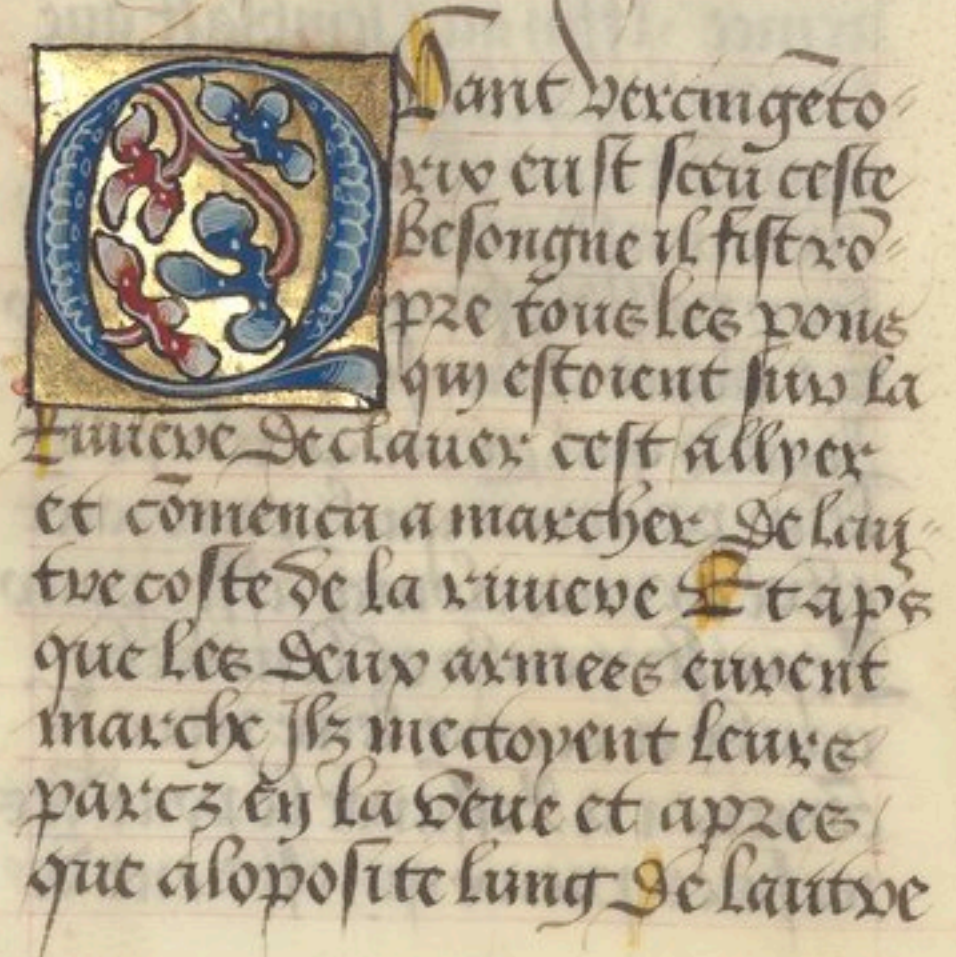 Quant vercingēto-
rix eust sceu ceste
besongne il fist rō-
pre tous les pons
qui estoient sur la
riuiere de clauer cest allyer
et cōmenca a marcher de lau-
tre coste de la riuiere Et aps
que les deux armees eurent
marche Ilz mectoyent leurs
parcz en la veue et apres
que a loposite lung de lautre